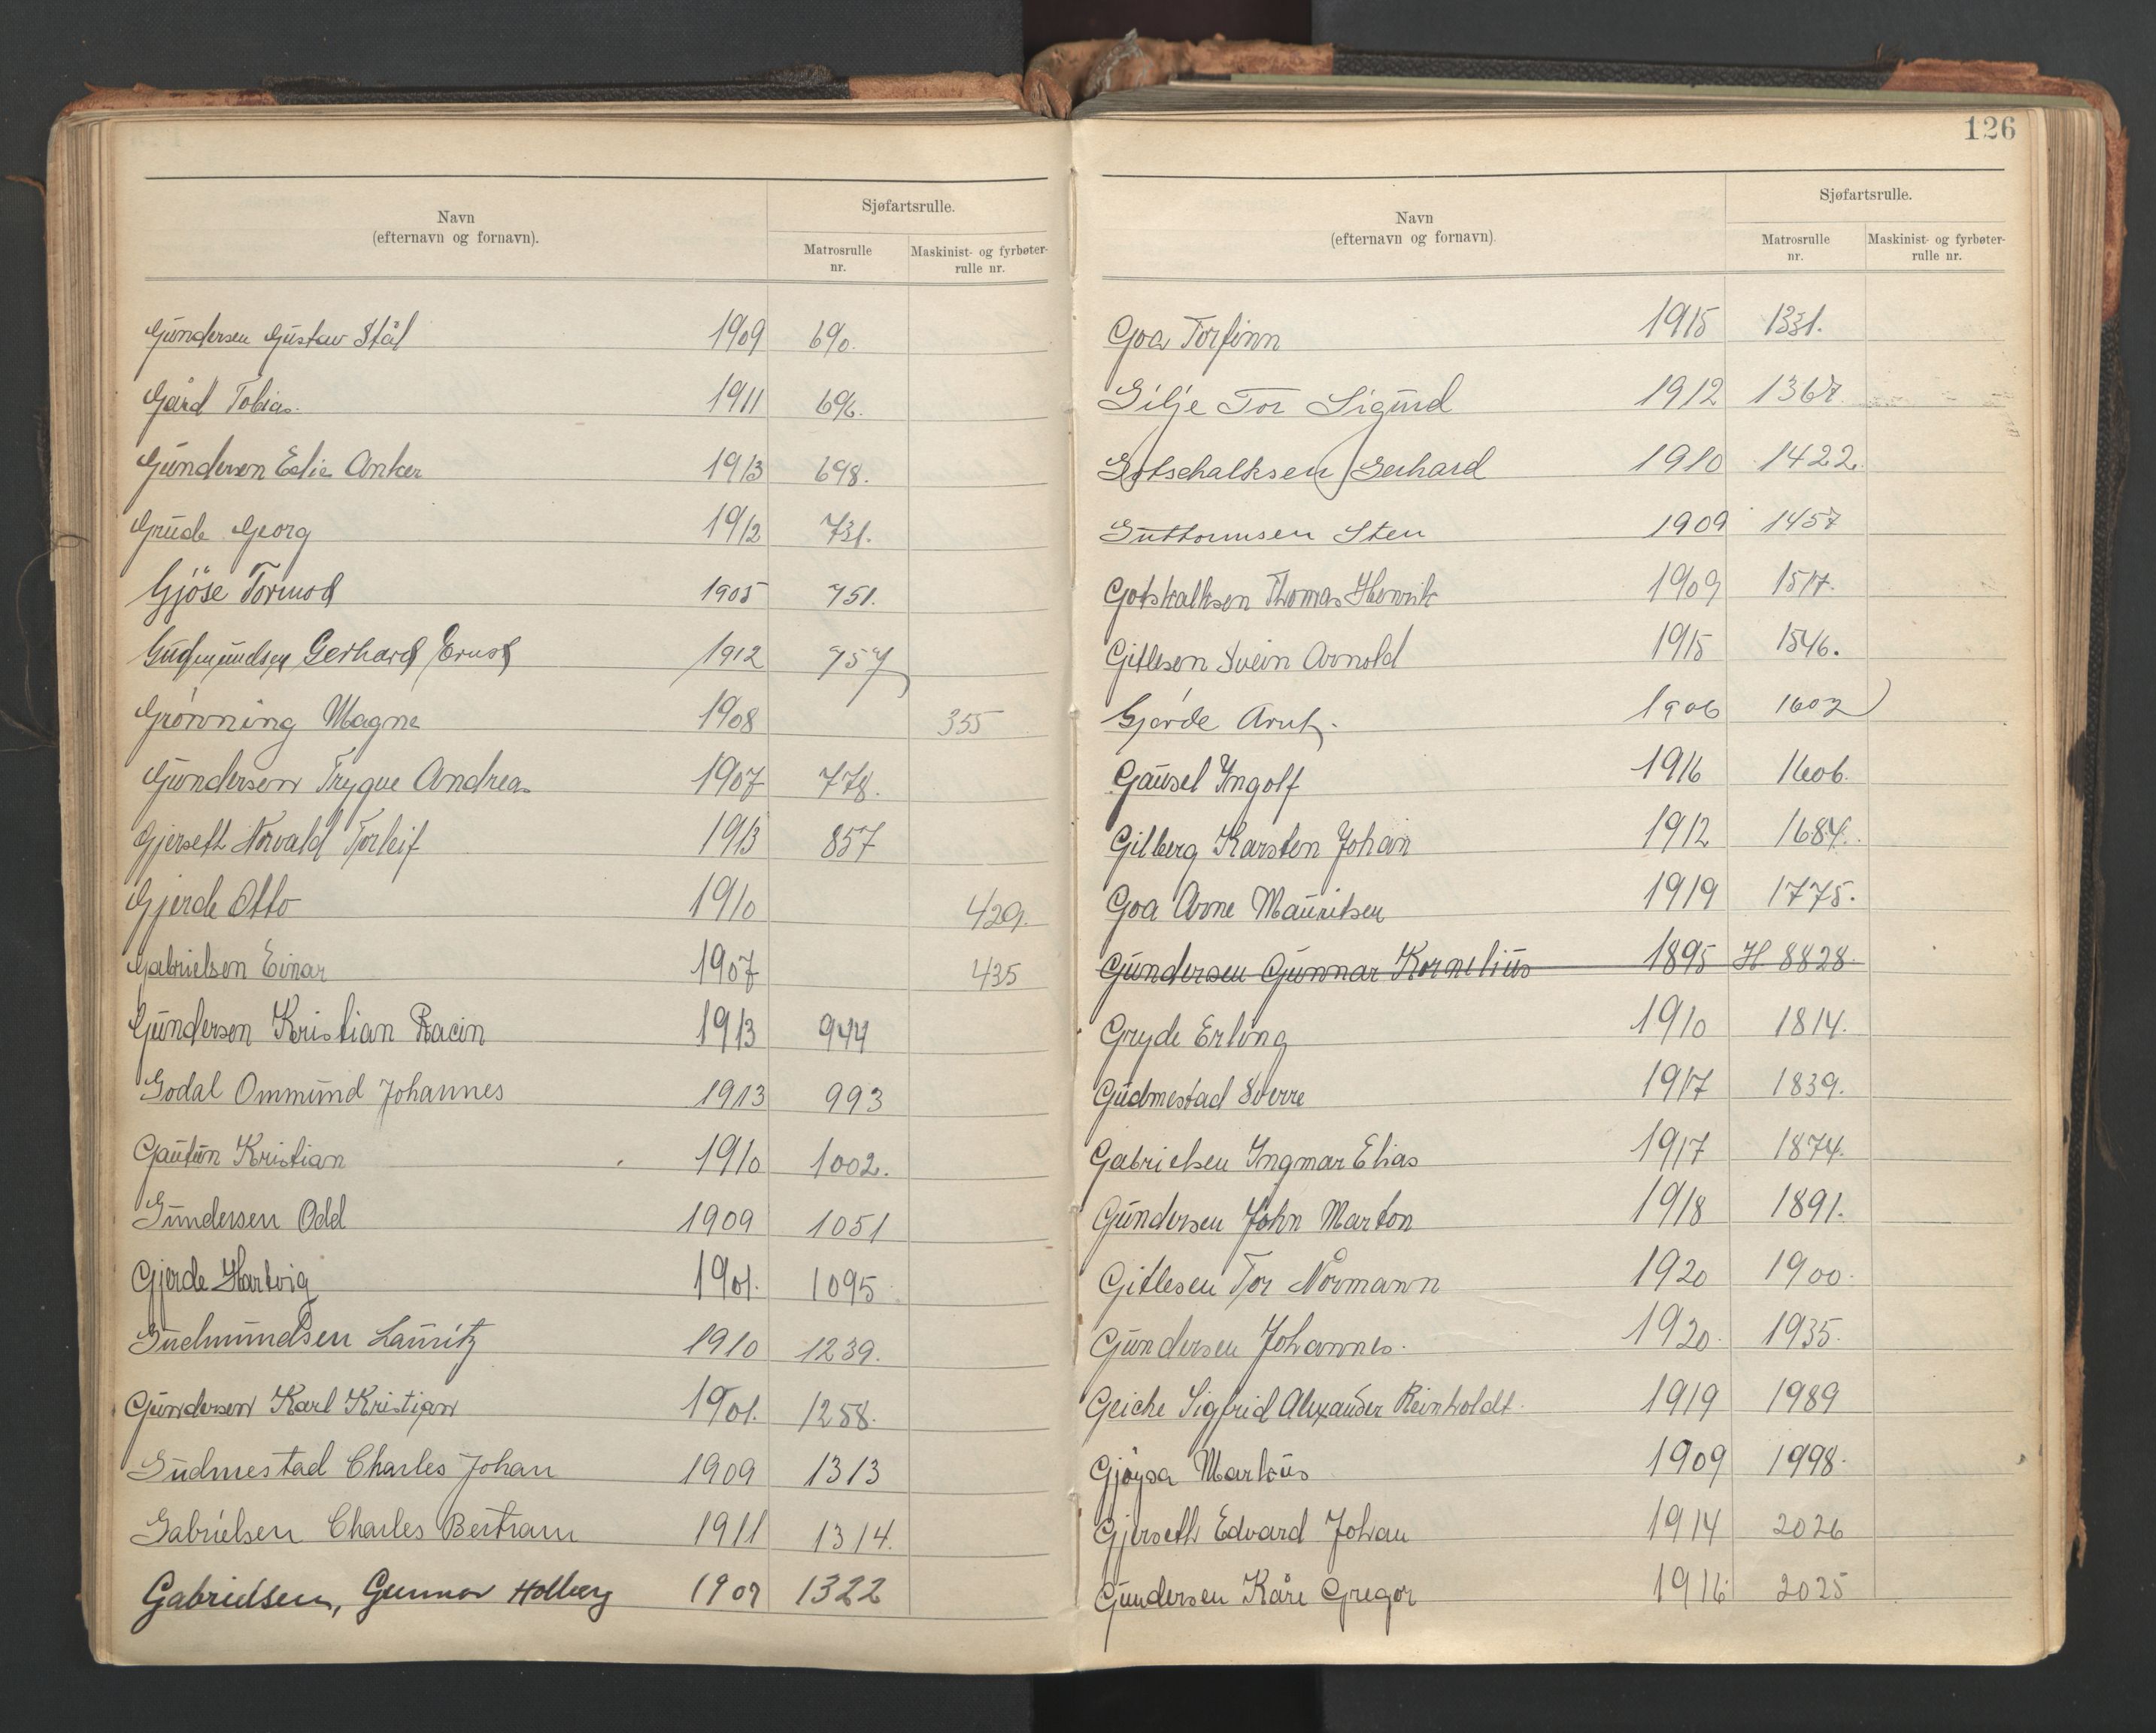 Navn
(efternavn og fornavn).
Sjøfartsrulle.
Matrosrulle
nr.
Maskinist- og fyrbøter-
rulle nr.
Gundersen Gustav Stål 1909 690.
Gård Tobias. 1911 696.
Gundersen Anker 1913 698.
Grude Georg 1912 731.
Gjöse Tormod 1905 751.
Gudmundsen Gerhard Ernst 1912 757
Grönning Magne 1908 355
Gundersen Trygve Andreas 1907 778.
Gjerseth Norvald Torleif 1913 857
Gjerde Otto 1910 429.
Gabrielsen Einar 1907 435
Gundersen Kristian Racin 1913 944
Godal Ommund Johannes 1913 993
Gautun Kristian 1910 1002.
Gundersen Odd 1909 1051
Gjerde Hartvig 1901. 1095
Gudmundsen Lauritz 1910 1239.
Gundersen Karl Kristian 1901. 1258.
Gudmestad Charles Johan 1909 1313
Gabrielsen Charles Bertram 1911 1314.
Gabrielsen, Gunnar Holberg 1909 1322
126
Navn
(efternavn og fornavn).
Sjøfartsrulle.
Matrosrulle
nr.
Maskinist- og fyrbøter-
rulle nr.
Goa Torfinn 1915 1331.
Gilje Tor Sigurd 1912 1367.
Gotschalksen Gerhard 1910 1422.
Guttormsen Sten 1909 1457
Gotskalksen Thomas Henrik 1909 1517.
Gitlesen Svein Arnold 1915 1546.
Gjerde Arnt. 1906 1602
Gausel Ingolf 1916 1606.
Gilberg Karsten Johan 1912 1684.
Goa Arne Mauritsen 1919 1775.
Gundersen Gunnar Kornelius 1895 H 8828.
Gryde Erling 1910 1814.
Gudmestad Sverre 1917 1839.
Gabrielsen Ingmar Elias 1917 1874.
Gundersen John Marton 1918 1891.
Gitlesen Tor Normann 1920 1900.
Gundersen Johannes. 1920. 1935.
Geiche Sigfrid Alexander Reinholdt. 1919 1989
Gjøysa Markus 1909 1998.
Gjerseth Edvard Johan 1914 2026
Gundersen Kåre Gregor 1916 2025